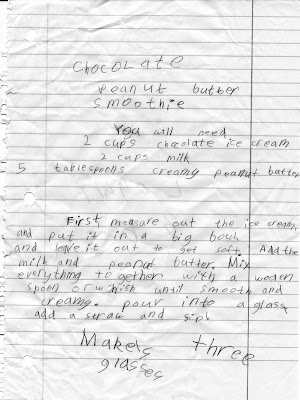 Chocolate
Peanut butter
Smoothie
You will need
2 cups chocolate ice cream
2 cups milk
5 tablespoons creamy peanut butter
First measure out the ice cream,
and put it in a big bowl
and leave it out to get soft. Add the
milk and peanut butter. Mix
everything together with a woden
spoon or whish until smooth and
creamy. pour into a glass
add a straw and sip!
Makes three
glasses